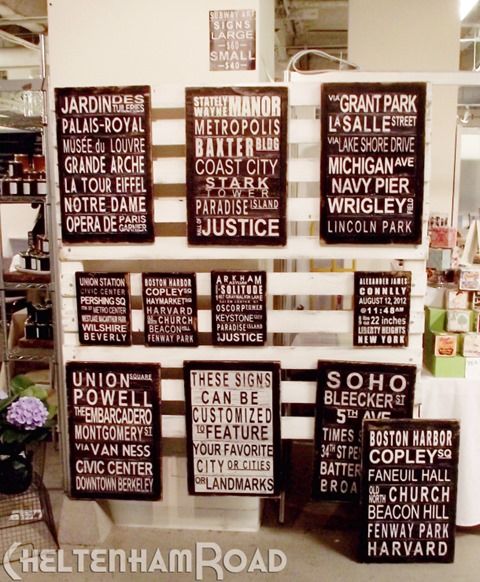 SUBWAY ART
SIGNS
LARGE
-$60-
SMALL
-$40-
JARDIN DES TUILERIES
PALAIS-ROYAL
MUSÉE DU LOUVRE
GRANDE ARCHE
LA TOUR EIFFEL
NOTRE-DAME
OPERA DE PARIS GARNIER
STATELY WAYNE MANOR
METROPOLIS
BAXTER BLDG
COAST CITY
STARK
TOWER
PARADISE ISLAND
HALL OF JUSTICE
VIA GRANT PARK
LA SALLE STREET
VIA LAKE SHORE DRIVE
MICHIGAN AVE
NAVY PIER
WRIGLEY FIELD
LINCOLN PARK
UNION STATION
CIVIC CENTER
PERSHING SQ
METRO CENTER
WESTLAKE MACARTHUR PARK
WILSHIRE
BEVERLY
BOSTON HARBOR
COPLEY SQ
HAYMARKET
HARVARD
OLD NORTH CHURCH
BEACON HILL
FENWAY PARK
ARKHAM ASYLUM
SOLITUDE
1407 GRAYMALKIN LANE
OSCORP TOWER
KEYSTONE CITY
PARADISE ISLAND
JUSTICE
ALEXANDER JAMES
CONNOLLY
AUGUST 12, 2012
@ 11:48 AM
22 inches
LIBERTY HEIGHTS
NEW YORK
UNION SQUARE
POWELL
THE EMBARCADERO
MONTGOMERY ST
VIA VAN NESS
CIVIC CENTER
DOWNTOWN BERKELEY
THESE SIGNS
CAN BE
CUSTOMIZED
TO FEATURE
YOUR FAVORITE
CITY OR CITIES
OR LANDMARKS
SOHO
BLEECKER ST
5TH AVE
TIMES
34TH ST PEN
BATTER
BROA
BOSTON HARBOR
COPLEY SQ
FANEUIL HALL
OLD NORTH CHURCH
BEACON HILL
FENWAY PARK
HARVARD
CHELTENHAMROAD